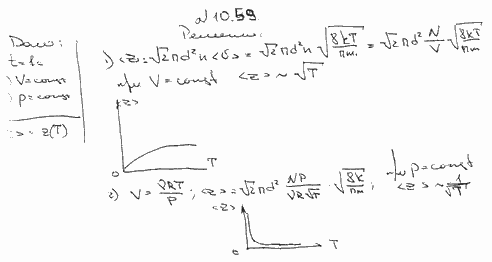 № 10.59
Решение:
Дано:
V=const
p=const
z(T)
1) <z> = √2πd²n<υ> = √2πd²n √(8kT/πm) = √2πd² N/V √(8kT/πm)
при V=const <z> ~ √T
<z>
0 T
2) V = νRT/P ; <z> = √2πd² NP/(νR√T) · √(8k/πm) ; при p=const <z> ~ 1/√T
<z>
0 T